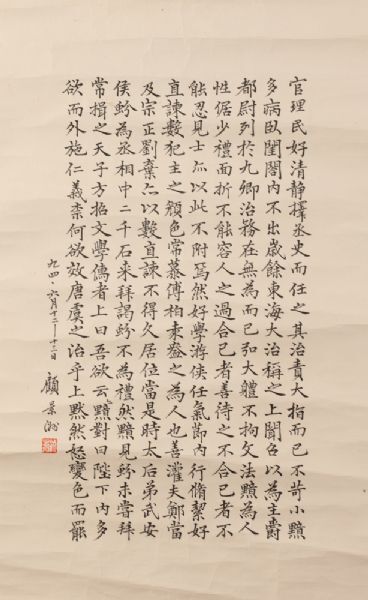 官理民好清静擇丞史而任之其治責大指而已不苛小黯
多病臥閨閤内不出歲餘東海大治稱之上聞召以為主爵
都尉列於九卿治務在無為而已弘大體不拘文法黯為人
性倨少禮面折不能容人之過合己者善待之不合己者不
能忍見士亦以此不附焉然好學游俠任氣節内行脩絜好
直諫數犯主之顏色常慕傅柏袁盎之為人也善灌夫鄭當
及宗正劉棄亦以數直諫不得久居位當是時太后弟武安
侯蚡為丞相中二千石来拜謁蚡不為禮然黯見蚡未嘗拜
常揖之天子方招文學儒者上曰吾欲云黯對曰陛下内多
欲而外施仁義柰何欲效唐虞之治乎上默然怒變色而罷
九四、六月十二—十三日 顧景洲